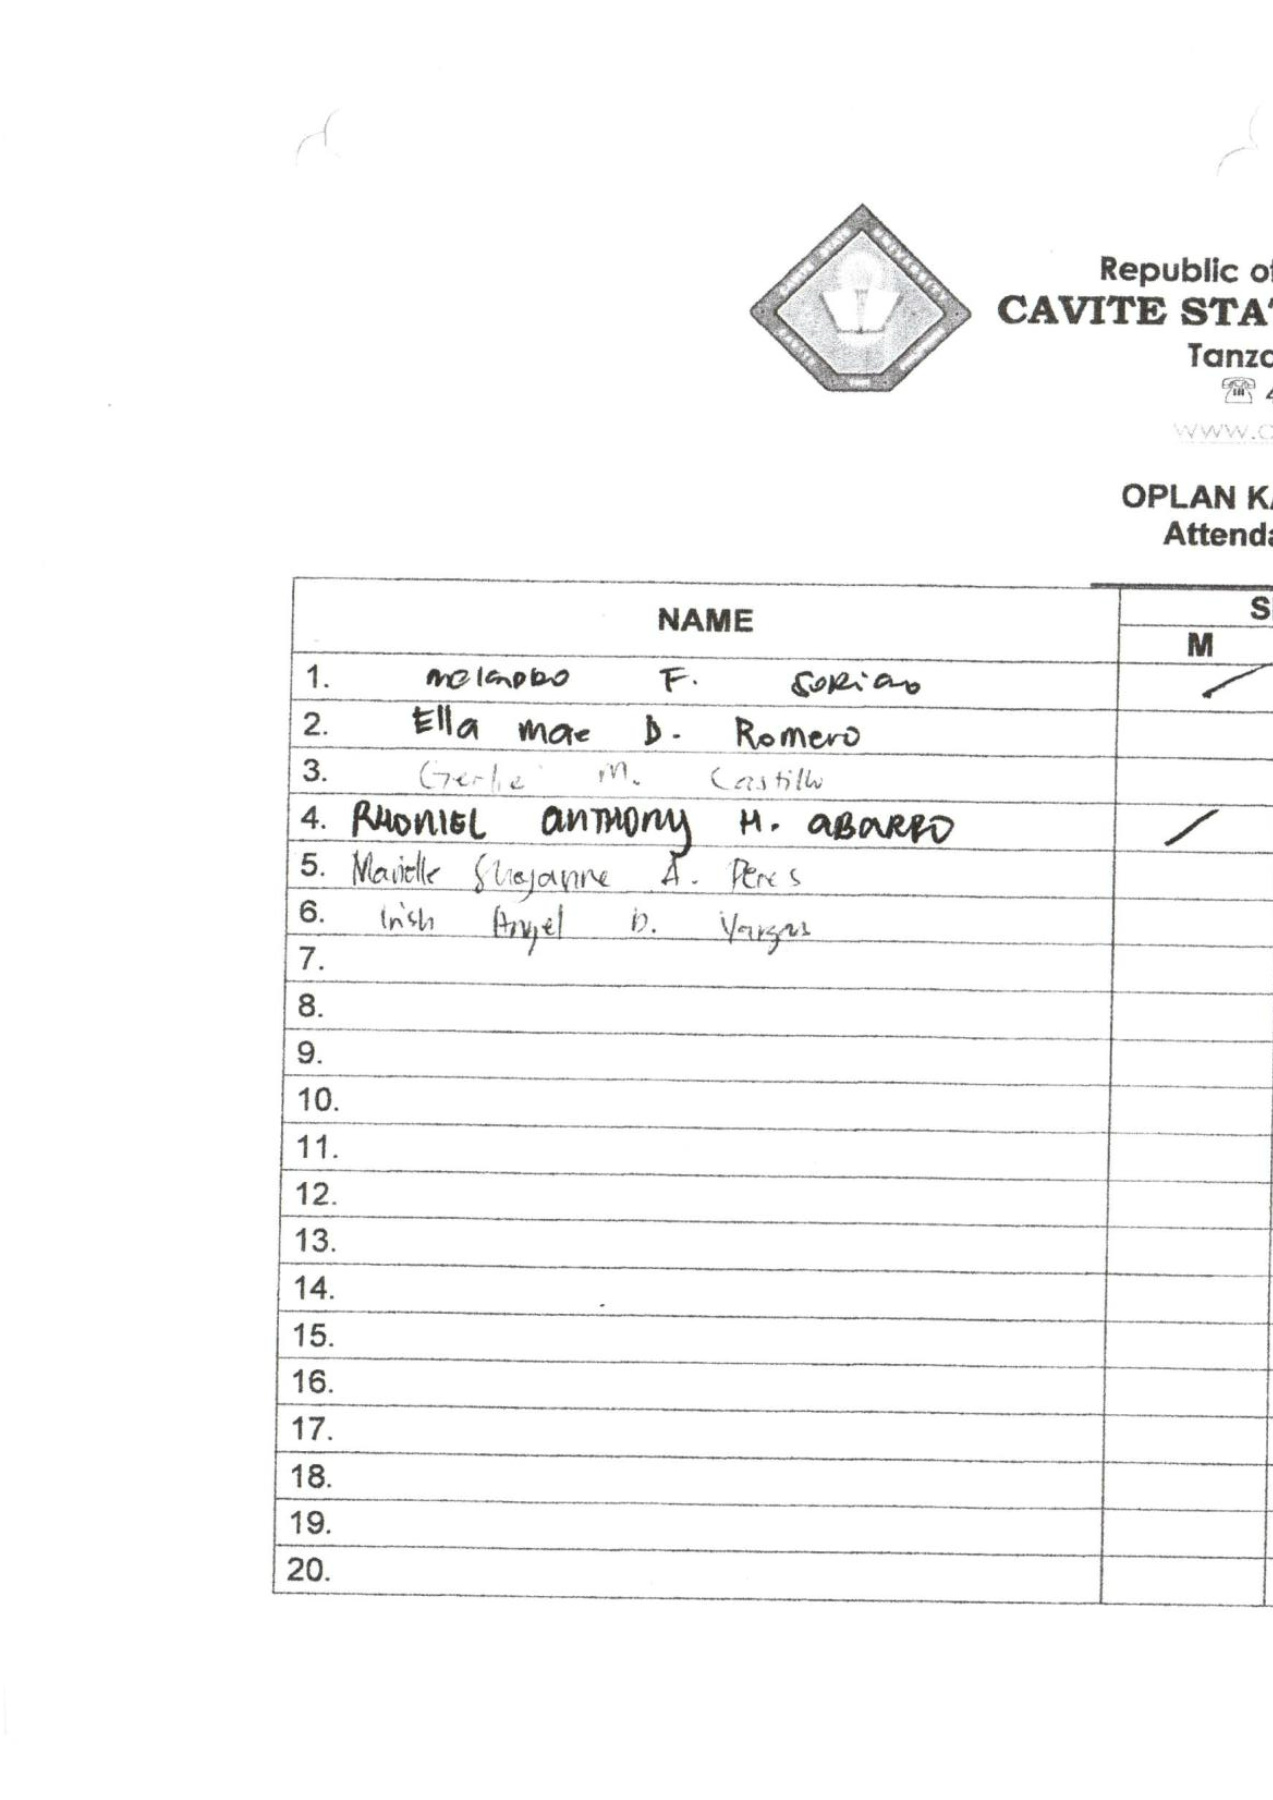 Republic of
CAVITE STA
Tanza
☎ 4
www.c
OPLAN KA
Attenda
NAME
S
M
1. F. SORIANO
2. Ella mae D. Romero
3. Gerlie M. Castillo
4. RHONIEL ANTHONY M. ABARRO
5. Marielle A. Peres
6. Irish Angel D. Vargas
7.
8.
9.
10.
11.
12.
13.
14.
15.
16.
17.
18.
19.
20.